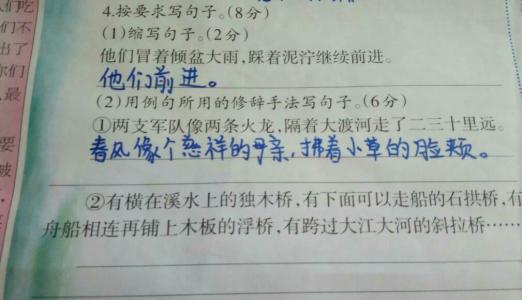 们吃
们不
出了
你们
最
要
破
4.按要求写句子。(8分)
(1)缩写句子。(2分)
他们冒着倾盆大雨,踩着泥泞继续前进。
他们前进。
(2)用例句所用的修辞手法写句子。(6分)
①两支军队像两条火龙,隔着大渡河走了二三十里远。
春风像个慈祥的母亲,拂着小草的脸颊。
②有横在溪水上的独木桥,有下面可以走船的石拱桥,有
舟船相连再铺上木板的浮桥,有跨过大江大河的斜拉桥……